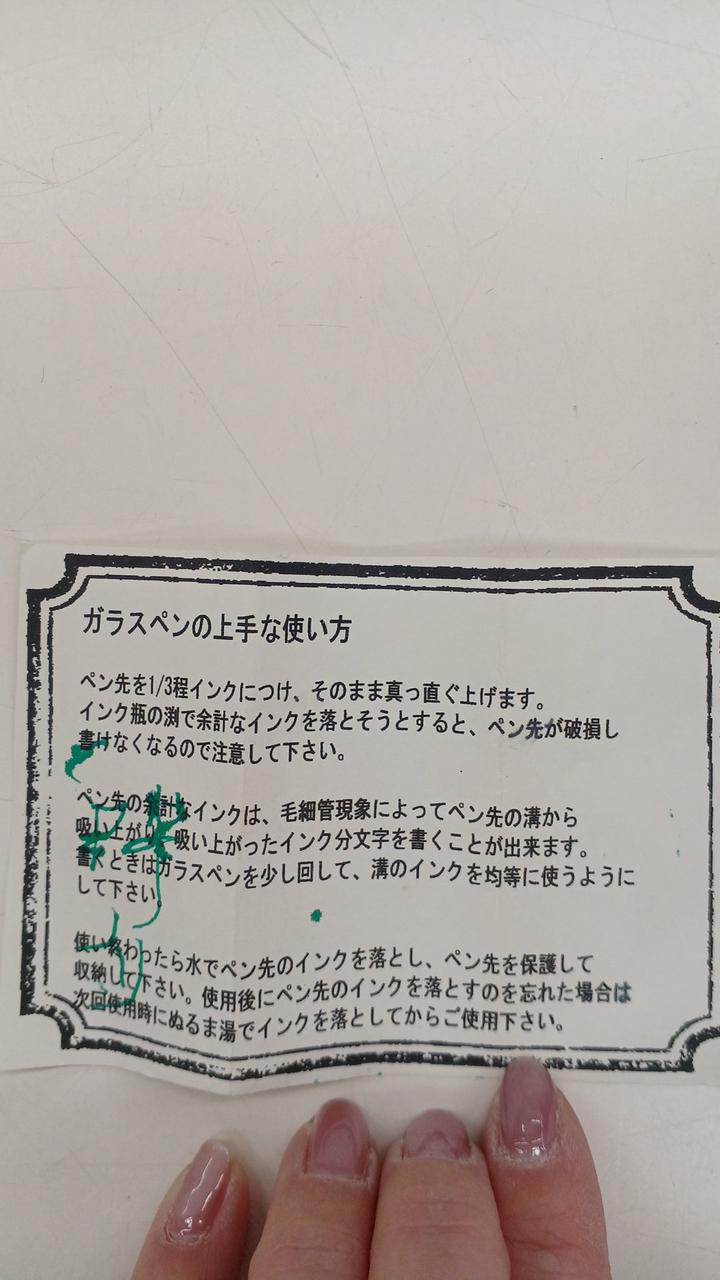 ガラスペンの上手な使い方
ペン先を1/3程インクにつけ、そのまま真っ直ぐ上げます。
インク瓶の渕で余計なインクを落とそうとすると、ペン先が破損し
書けなくなるので注意して下さい。
ペン先の余計なインクは、毛細管現象によってペン先の溝から
吸い上がり、吸い上がったインク分文字を書くことが出来ます。
書くときはガラスペンを少し回して、溝のインクを均等に使うように
して下さい。
使い終わったら水でペン先のインクを落とし、ペン先を保護して
収納して下さい。使用後にペン先のインクを落とすのを忘れた場合は
次回使用時にぬるま湯でインクを落としてからご使用下さい。